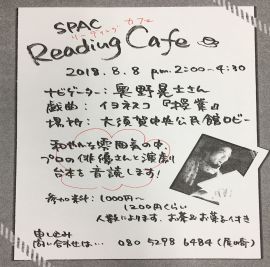 SPAC
リーディング カフェ
Reading Cafe
2018.8.8 p.m.2:00~4:30
ナビゲーター：奥野晃士さん
戯曲：イヨネスコ『授業』
場所：大須賀中央公民館ロビー
和やかな雰囲気の中、
プロの俳優さんと演劇
台本を音読します！
参加料：1000円~
1200円くらい
人数によります、お茶&お菓子付き
申し込み
問い合わせは… 080 5298 6484